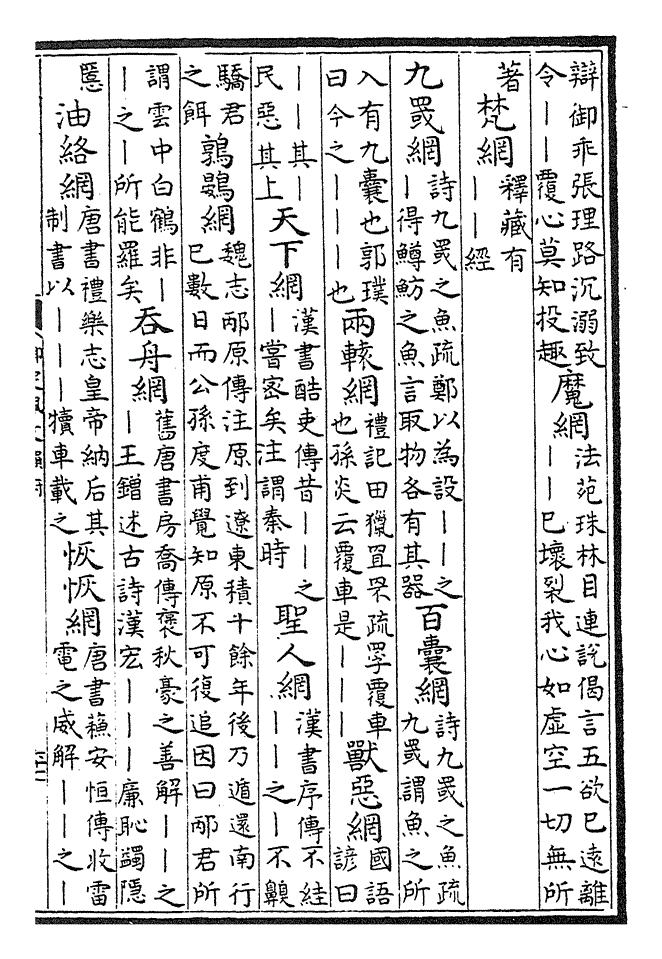 辯御乖張理路沉溺致
令｜｜覆心莫知投趣
魔網
法苑珠林目連說偈言五欲已遠離
｜｜已壞裂我心如虛空一切無所
著
梵網
釋藏有
｜｜經
九罭網
詩九罭之魚疏鄭以為設｜｜之
｜得鱒魴之魚言取物各有其器
百囊網
詩九罭之魚疏
九罭謂魚之所
入有九囊也郭璞
曰今之｜｜｜也
兩轅網
禮記田獵罝罘疏罦覆車
也孫炎云覆車是｜｜｜
獸惡網
國語
諺曰
｜｜其｜
民惡其上
天下網
漢書酷吏傳昔｜｜之
｜嘗密矣注謂秦時
聖人網
漢書序傳不絓
｜｜之｜不齅
驕君
之餌
鶉鷃網
魏志邴原傳注原到遼東積十餘年後乃遁還南行
已數日而公孫度甫覺知原不可復追因曰邴君所
謂雲中白鶴非｜
｜之｜所能羅矣
吞舟網
舊唐書房喬傳褒秋豪之善解｜｜之
｜王鐕述古詩漢宏｜｜｜廉恥蠲隱
慝
油絡網
唐書禮樂志皇帝納后其
制書以｜｜｜犢車載之
恢恢網
唐書蘇安恒傳收雷
電之威解｜｜之｜